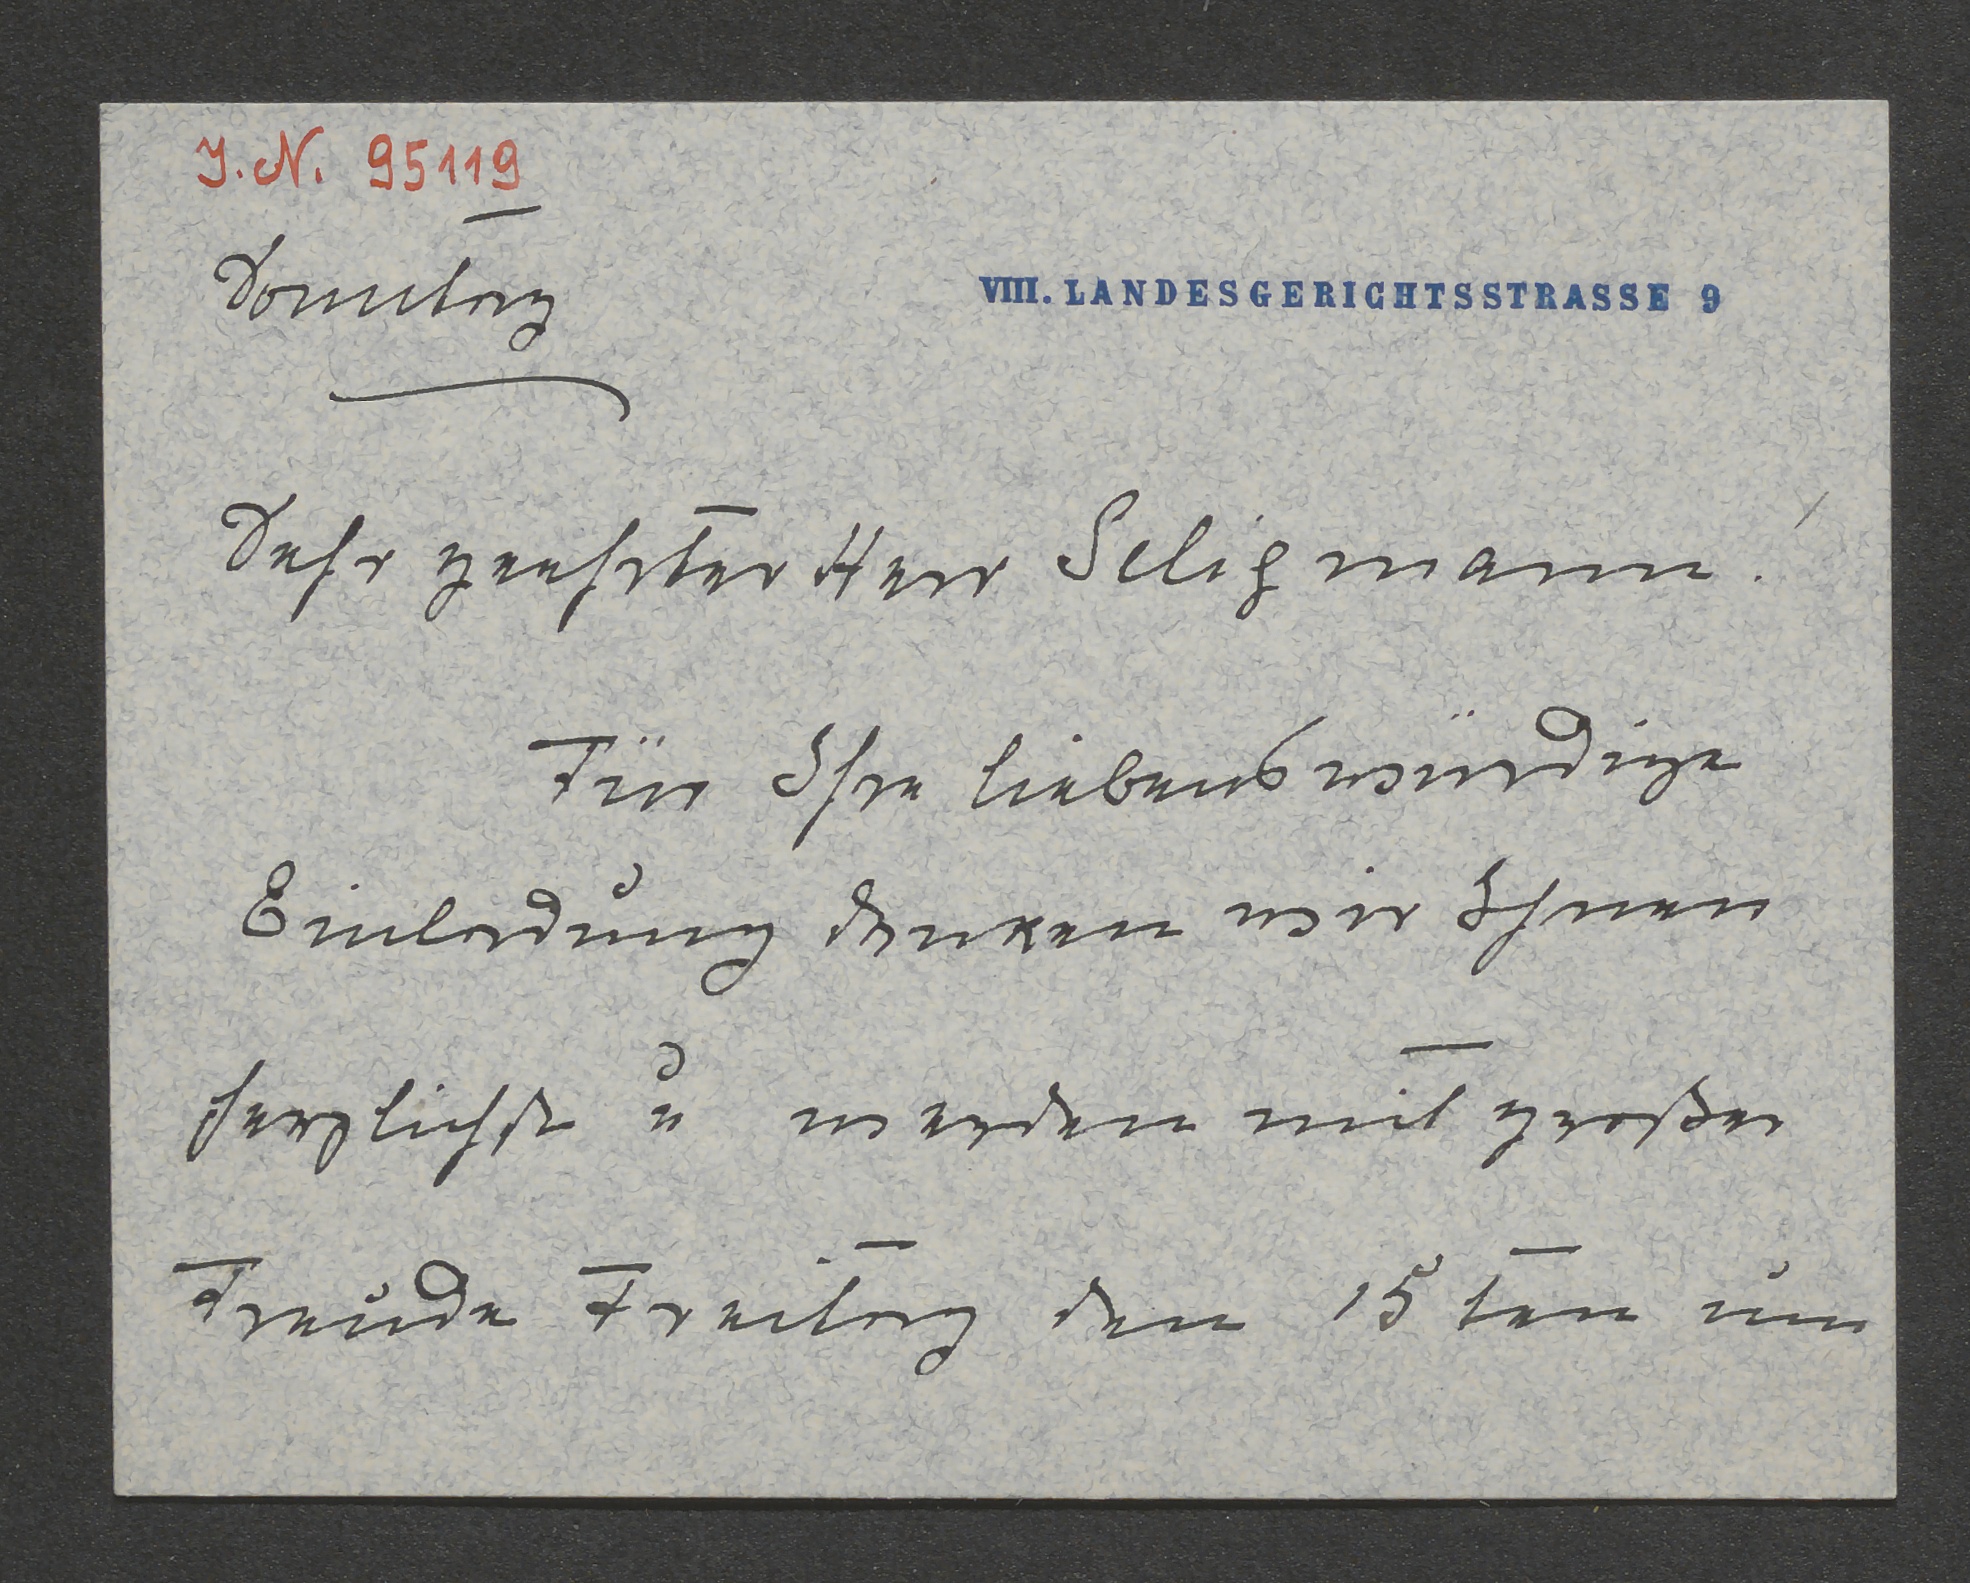 J.N. 95119
Sonntag
VIII. LANDESGERICHTSSTRASSE 9
Sehr geehrter Herr Seligmann!
Für Ihre liebenswürdige
Einladung danken wir Ihnen
herzlichst u werden mit großer
Freude Freitag den 15ten um